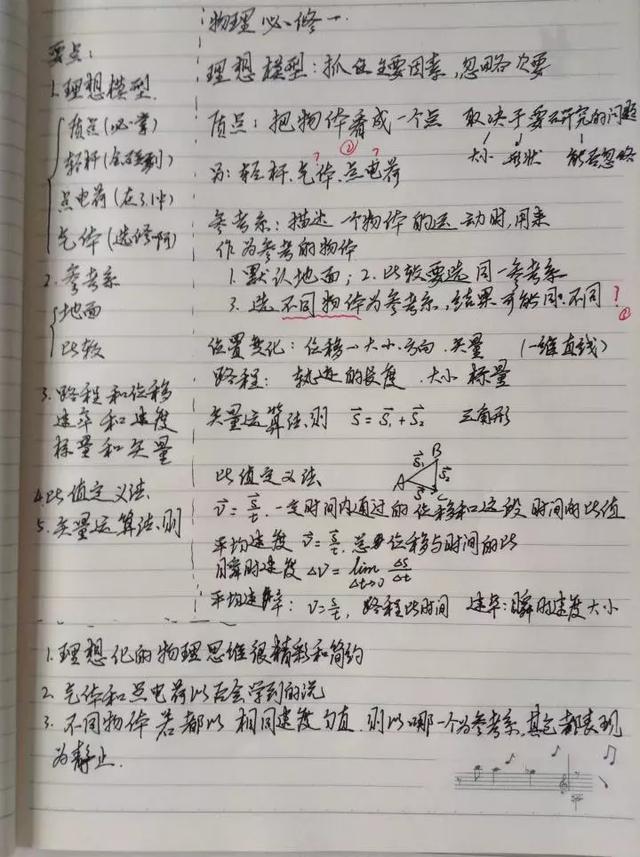 物理必修一
要点：
1.理想模型
质点(必掌)
轻杆(会碰到)
点电荷(在3.1中)
气体(选修啊)
2.参考系
地面
比较
3.路程和位移
速率和速度
标量和矢量
4.比值定义法
5.矢量运算法则
理想模型：抓住主要因素,忽略次要
质点：把物体看成一个点 取决于要研究的问题
② 大小 形状 能否忽略
为：轻杆、气体、点电荷
? ?
参考系：描述一个物体的运动时,用来
作为参考的物体
1.默认地面；2.比较要选同一参考系
3.选不同物体为参考系,结果可能同.不同 ?
①
位置变化：位移→大小.方向.矢量 (一维直线)
路程：轨迹的长度.大小 标量
矢量运算法则 S=S₁+S₂ 三角形
比值定义法
A B C S₁ S₂ S
v=s/t.一定时间内通过的位移和这段时间的比值
平均速度 v=s/t.总位移与时间的比
瞬时速度 ΔV=lim Δt→0 Δs/Δt
平均速率：v=s/t,路程比时间 速率:瞬时速度大小
1.理想化的物理思维很精彩和简约
2.气体和点电荷以后会学到的说
3.不同物体若都以相同速度匀值.则以哪一个为参考系,其它都表现
为静止.